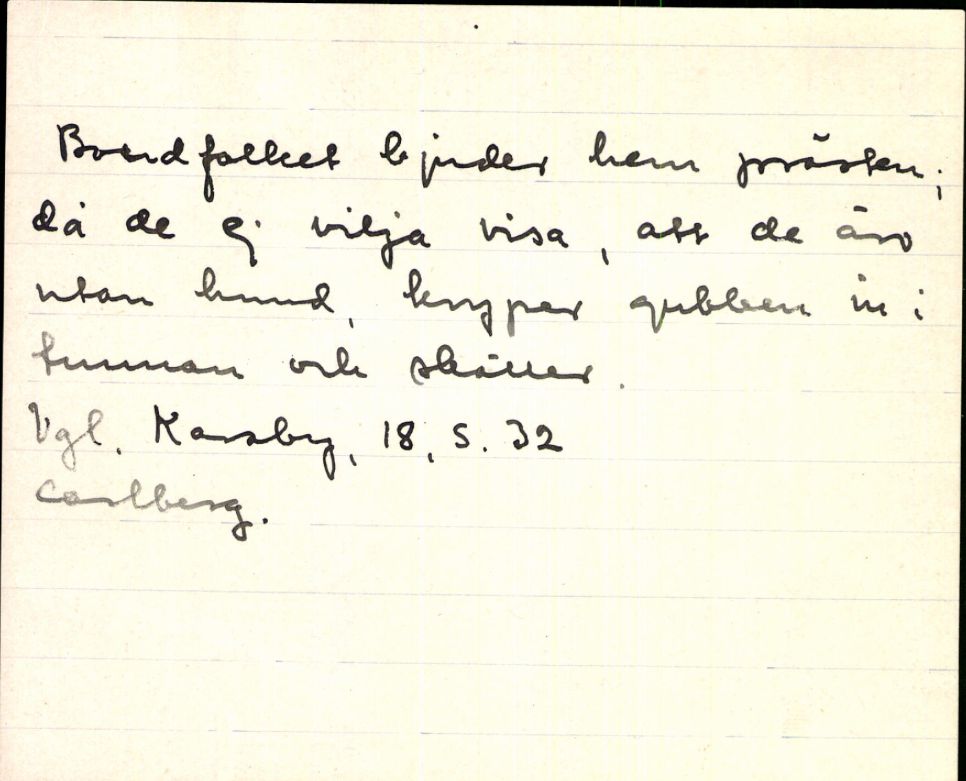 Bondfolket bjuder hem prästen;
då de ej vilja visa, att de äro
utan hund, kryper gubben in i
tunnan och skäller.
Vgl. Karsby, 18, S. 32
Carlberg.